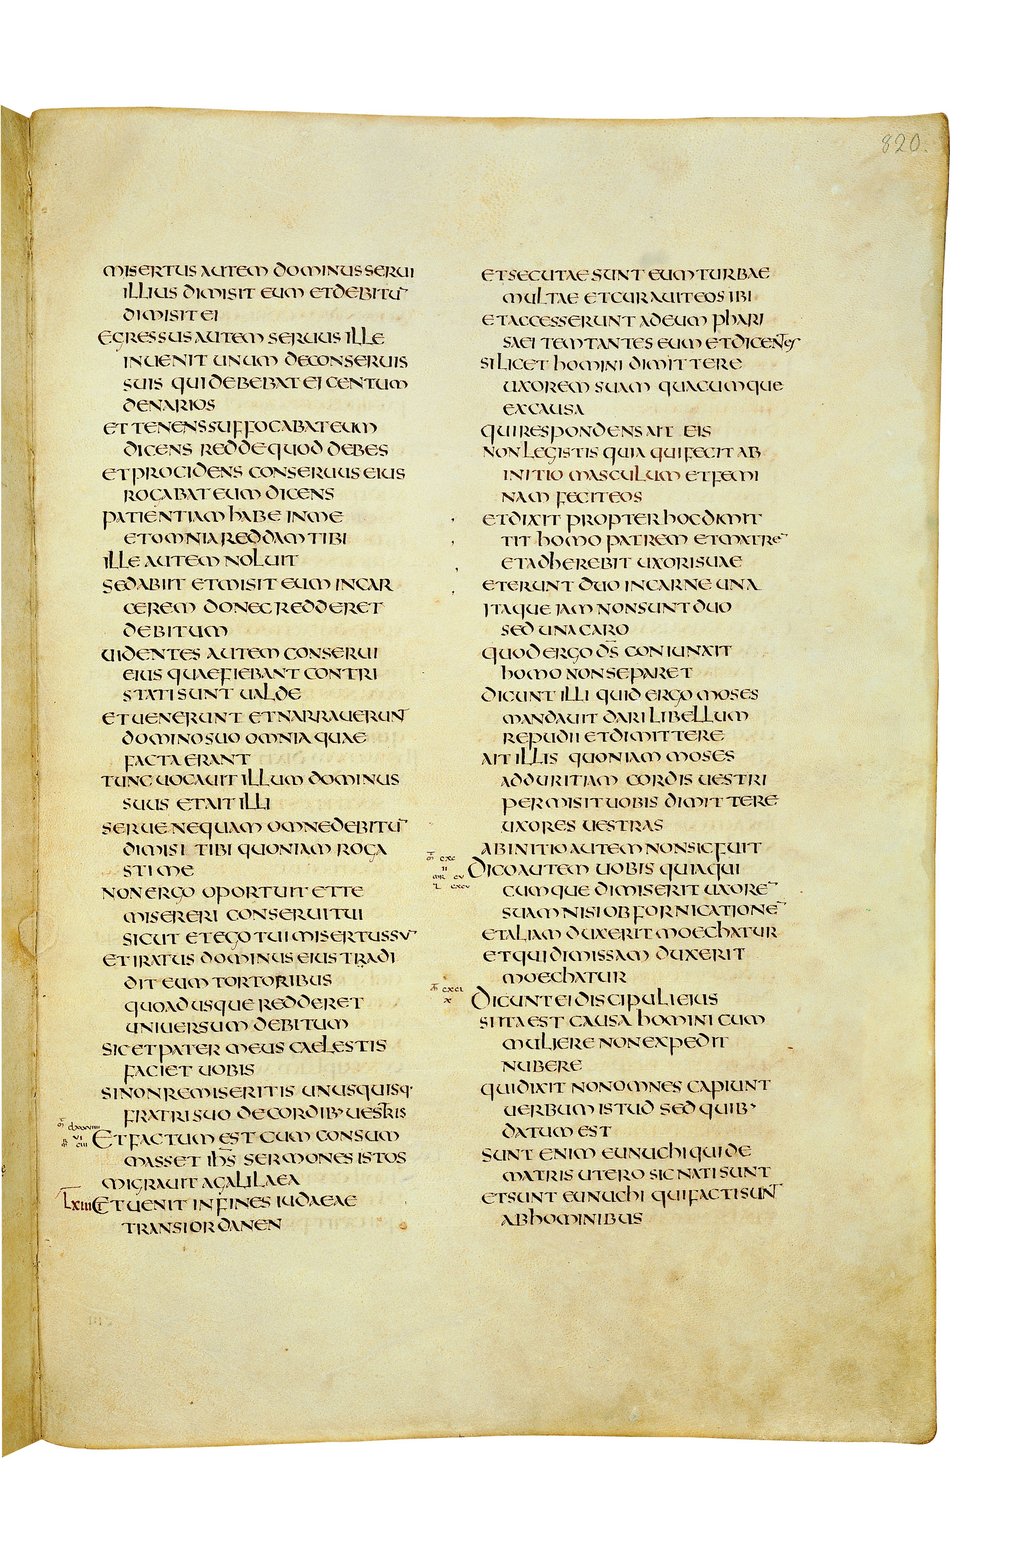 820.
MISERTUS AUTEM DOMINUS SERUI
ILLIUS DIMISIT EUM ET DEBITU¯
DIMISIT EI
EGRESSUS AUTEM SERUUS ILLE
INUENIT UNUM DE CONSERUIS
SUIS QUI DEBEBAT EI CENTUM
DENARIOS
ET TENENS SUFFOCABAT EUM
DICENS REDDE QUOD DEBES
ET PROCIDENS CONSERUUS EIUS
ROGABAT EUM DICENS
PATIENTIAM HABE IN ME
ET OMNIA REDDAM TIBI
ILLE AUTEM NOLUIT
SED ABIIT ET MISIT EUM IN CAR
CEREM DONEC REDDERET
DEBITUM
UIDENTES AUTEM CONSERUI
EIUS QUAE FIEBANT CONTRI
STATI SUNT UALDE
ET UENERUNT ET NARRAUERUNT
DOMINO SUO OMNIA QUAE
FACTA ERANT
TUNC UOCAUIT ILLUM DOMINUS
SUUS ET AIT ILLI
SERUE NEQUAM OMNE DEBITU¯
DIMISI TIBI QUONIAM ROGA
STI ME
NON ERGO OPORTUIT ET TE
MISERERI CONSERUI TUI
SICUT ET EGO TUI MISERTUS SU¯
ET IRATUS DOMINUS EIUS TRADI
DIT EUM TORTORIBUS
QUOADUSQUE REDDERET
UNIUERSUM DEBITUM
SIC ET PATER MEUS CAELESTIS
FACIET UOBIS
SI NON REMISERITIS UNUSQUISQ·
FRATRI SUO DE CORDIB' UESTRIS
ET FACTUM EST CUM CONSUM
MASSET IH̄S SERMONES ISTOS
MIGRAUIT A GALILAEA
LXIII ET UENIT IN FINES IUDAEAE
TRANS IORDANEN
ET SECUTAE SUNT EUM TURBAE
MULTAE ET CURAUIT EOS IBI
ET ACCESSERUNT AD EUM PHARI
SAEI TEMTANTES EUM ET DICENTES
SI LICET HOMINI DIMITTERE
UXOREM SUAM QUACUMQUE
EX CAUSA
QUI RESPONDENS AIT EIS
NON LEGISTIS QUIA QUI FECIT AB
INITIO MASCULUM ET FEMI
NAM FECIT EOS
ET DIXIT PROPTER HOC DIMIT
TIT HOMO PATREM ET MATRE¯
ET ADHEREBIT UXORI SUAE
ET ERUNT DUO IN CARNE UNA
ITAQUE IAM NON SUNT DUO
SED UNA CARO
QUOD ERGO D̄S CONIUNXIT
HOMO NON SEPARET
DICUNT ILLI QUID ERGO MOSES
MANDAUIT DARI LIBELLUM
REPUDII ET DIMITTERE
AIT ILLIS QUONIAM MOSES
AD DURITIAM CORDIS UESTRI
PERMISIT UOBIS DIMITTERE
UXORES UESTRAS
AB INITIO AUTEM NON SIC FUIT
DICO AUTEM UOBIS QUIA QUI
CUMQUE DIMISERIT UXORE¯
SUAM NISI OB FORNICATIONE¯
ET ALIAM DUXERIT MOECHATUR
ET QUI DIMISSAM DUXERIT
MOECHATUR
DICUNT EI DISCIPULI EIUS
SI ITA EST CAUSA HOMINI CUM
MULIERE NON EXPEDIT
NUBERE
QUI DIXIT NON OMNES CAPIUNT
UERBUM ISTUD SED QUIB'
DATUM EST
SUNT ENIM EUNUCHI QUI DE
MATRIS UTERO SIC NATI SUNT
ET SUNT EUNUCHI QUI FACTI SUNT
AB HOMINIBUS